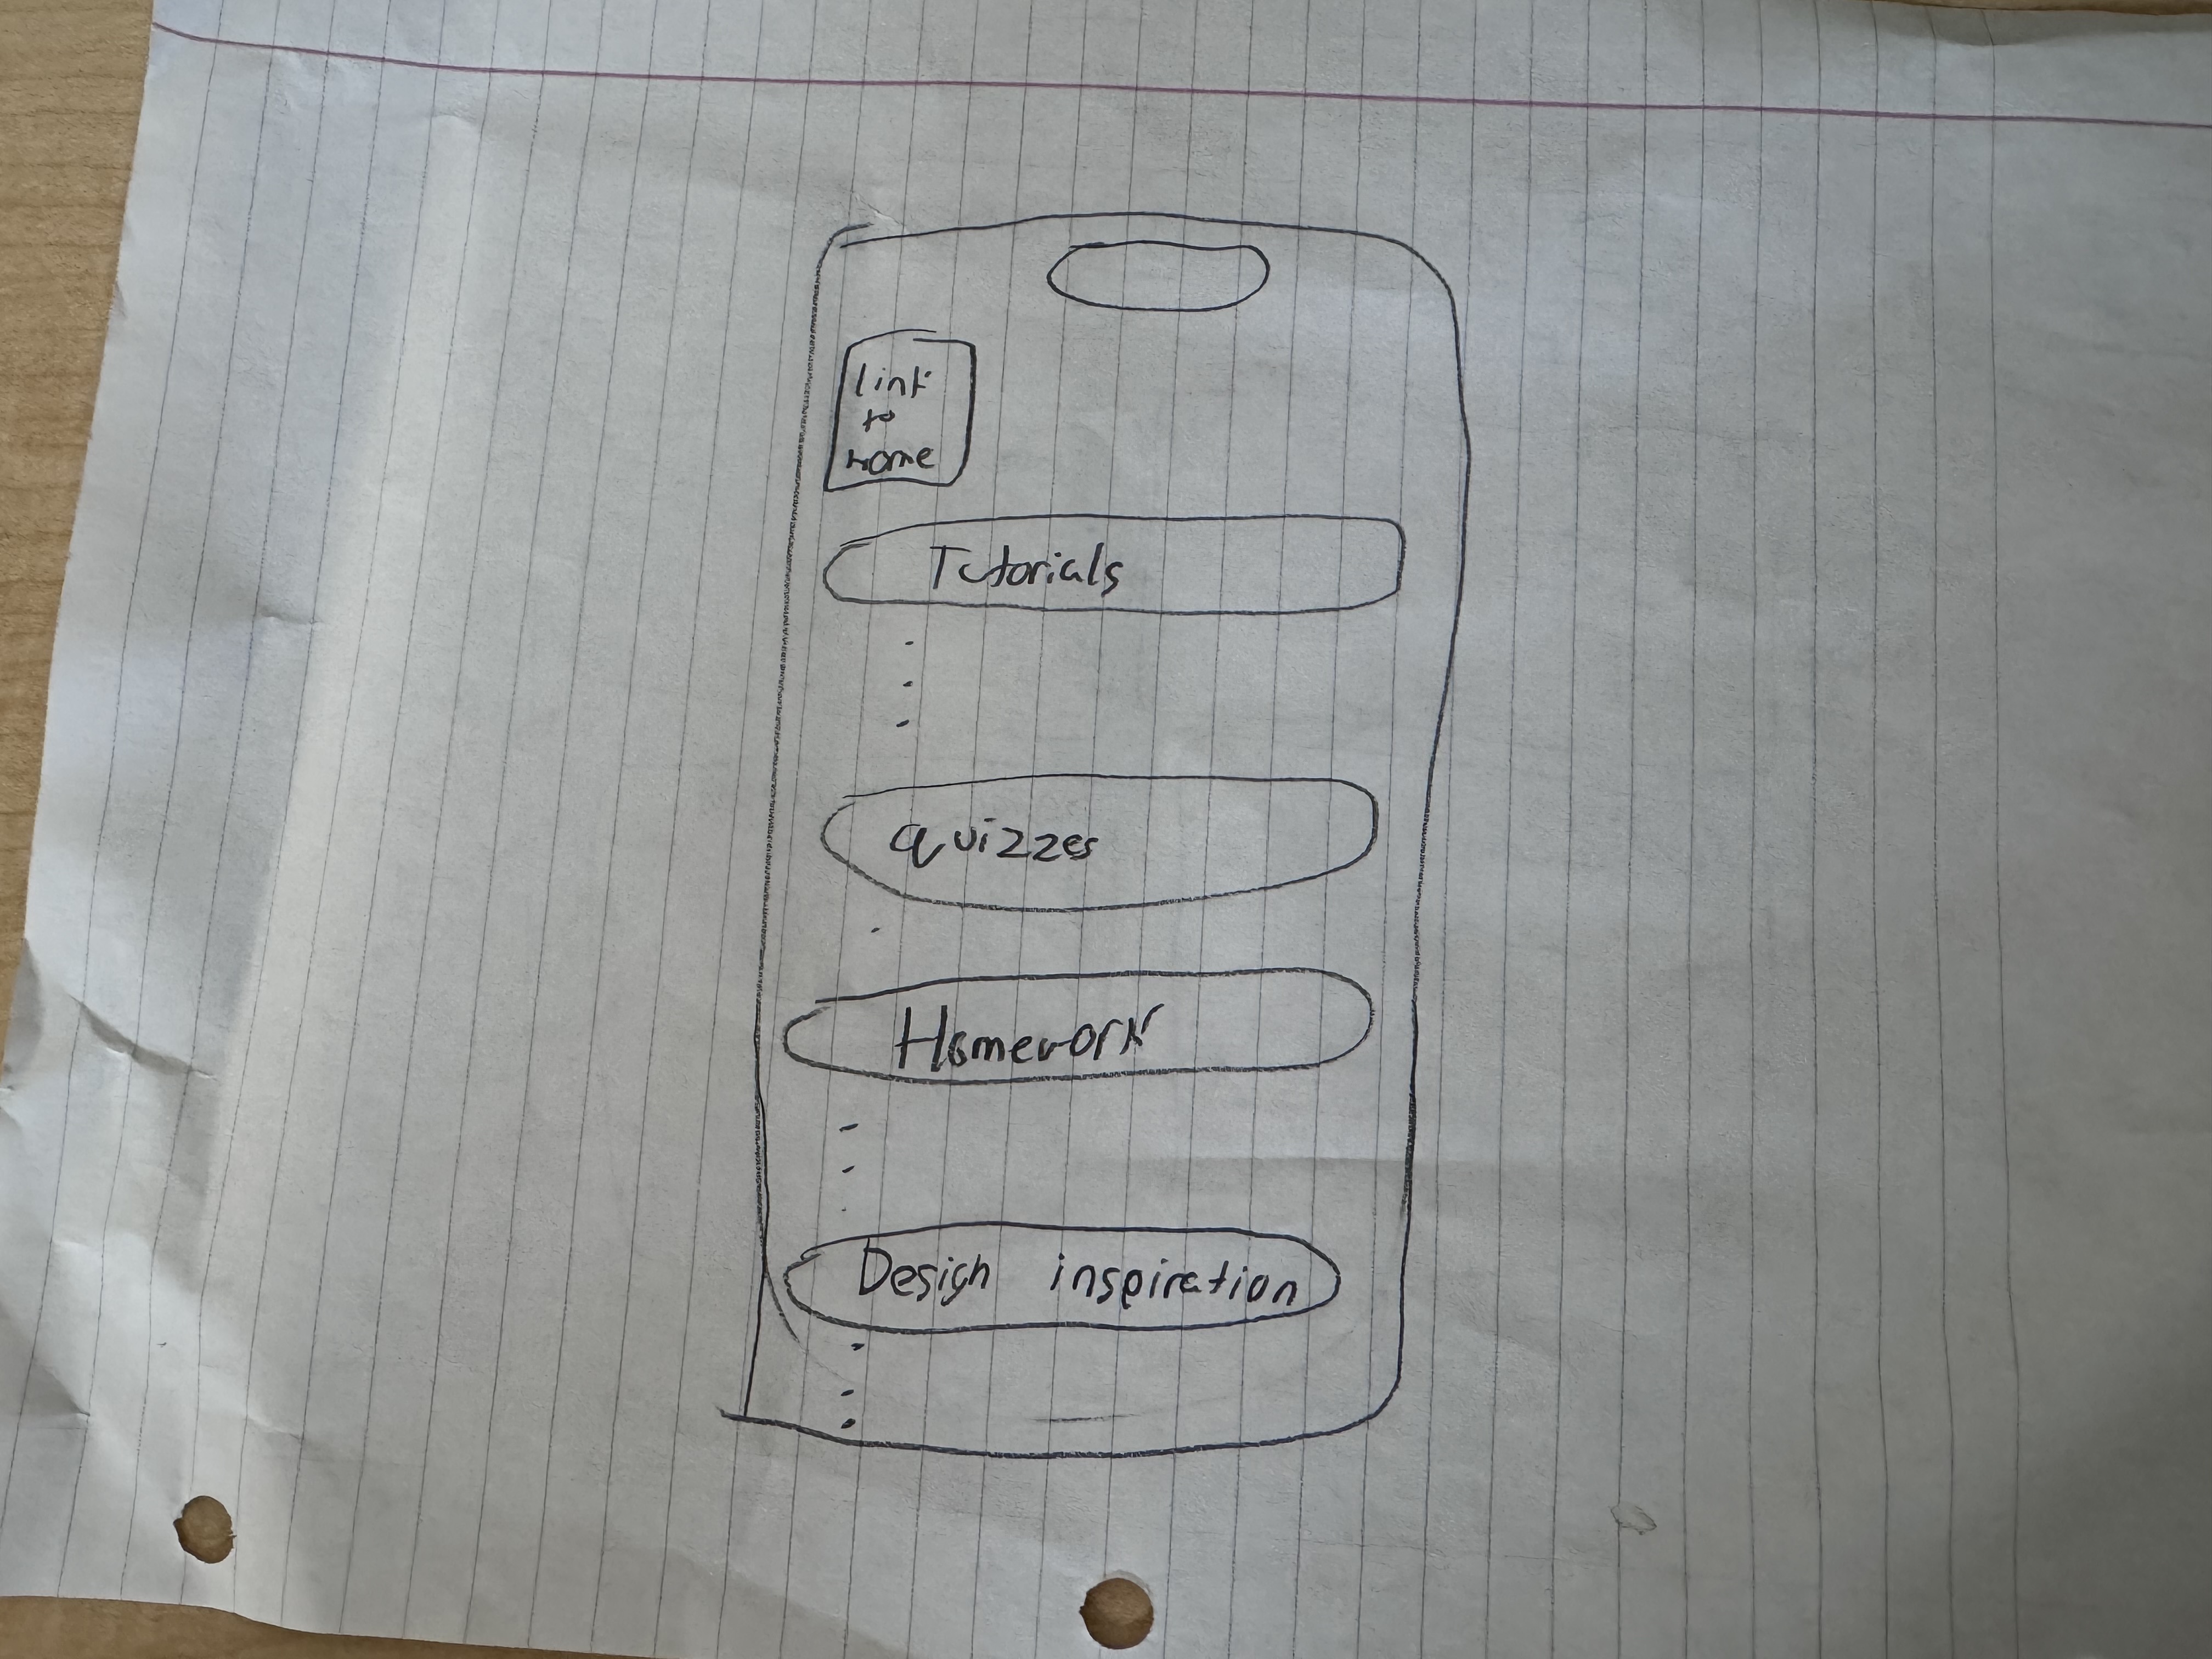 link
to
Home
Tutorials
quizzes
Homework
Design inspiration